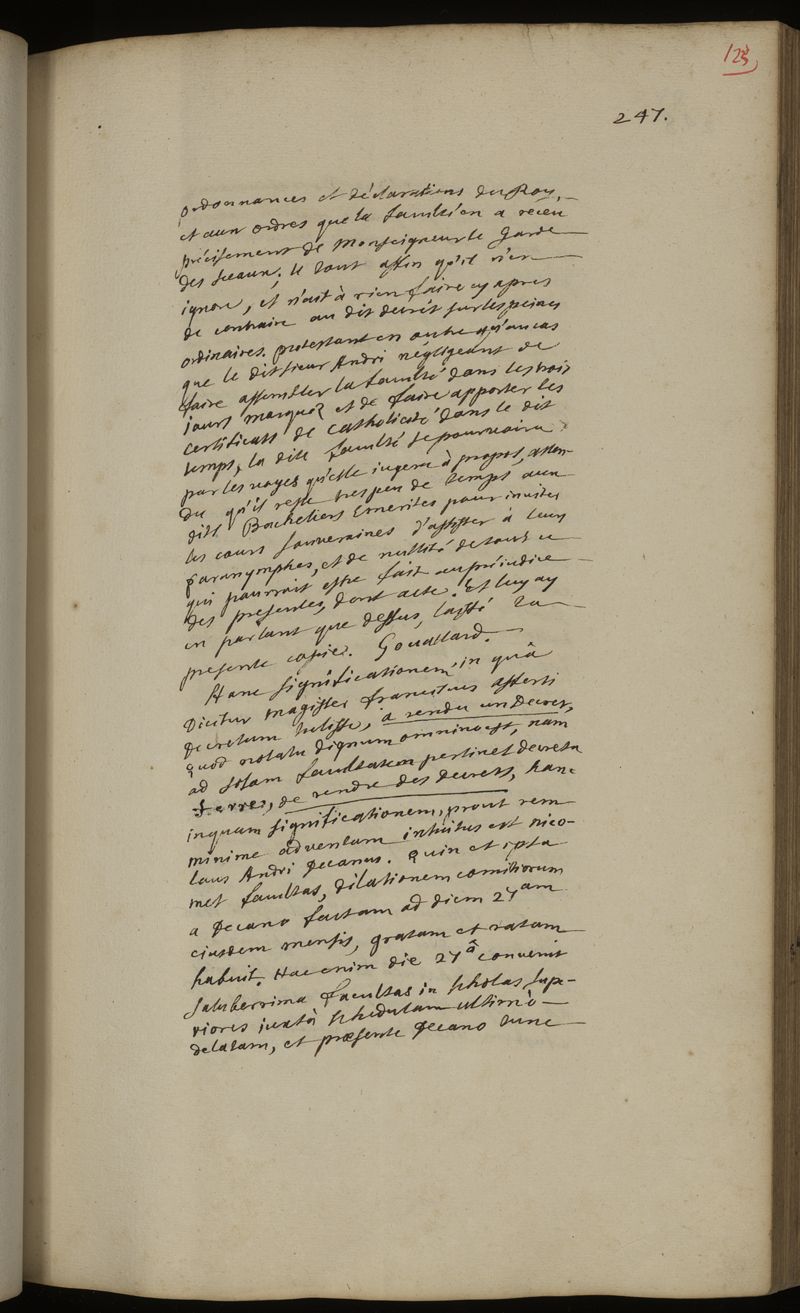 123
247.
ordonnances et déclarations du Roy,
et aux ordres que la faculté en a receu
précisement de Monseigneur le Garde
des sceaux; le tout affin qu'il n'en
ignore, et n'ait à rien faire cy apres
de contraire au dit decret sur les peines
ordinaires. protestant en outre qu'au cas
que le dit sieur Andri négligeant de
faire assembler la faculté dans les trois
jours marquez et de faire apporter les
certificats de catholicité dans le dit
temps, la dite faculté se pourvoira
par les voyes qu'elle jugera à propos, atten-
du qu'il reste tres peu de temps aux
dits Bacheliers Emerites pour inviter
les cours souveraines d'assister à leurs
paranymphes, et de nullité de tout ce
qui pourroit estre fait au préjudice
des presentes, dont acte. Et luy ay
en parlant que dessus, laissé la
presente copie. Gouallard.
Hanc significationem, in quâ
dicitur magister franciscus afforti
decretum tulisse, a rendu un Decret,
quod notatu dignum omninò est, nam
ad solam facultatem pertinet decreta
ferre, de rendre des decrets, hanc
inquam significationem, prout rem
minime adventam intuitus est nico-
laus Andri Decanus. Quin et ipsa
met facultas, dilationem comitiorum
a Decano factam ad diem 27am
eiusdem mensis, gratam et ratam
habuit. Hac enim die 27â convenit
saluberrima facultas in scholas supe-
riores juxtà schedulam ultimò
delatam, et præsente Decano tunc